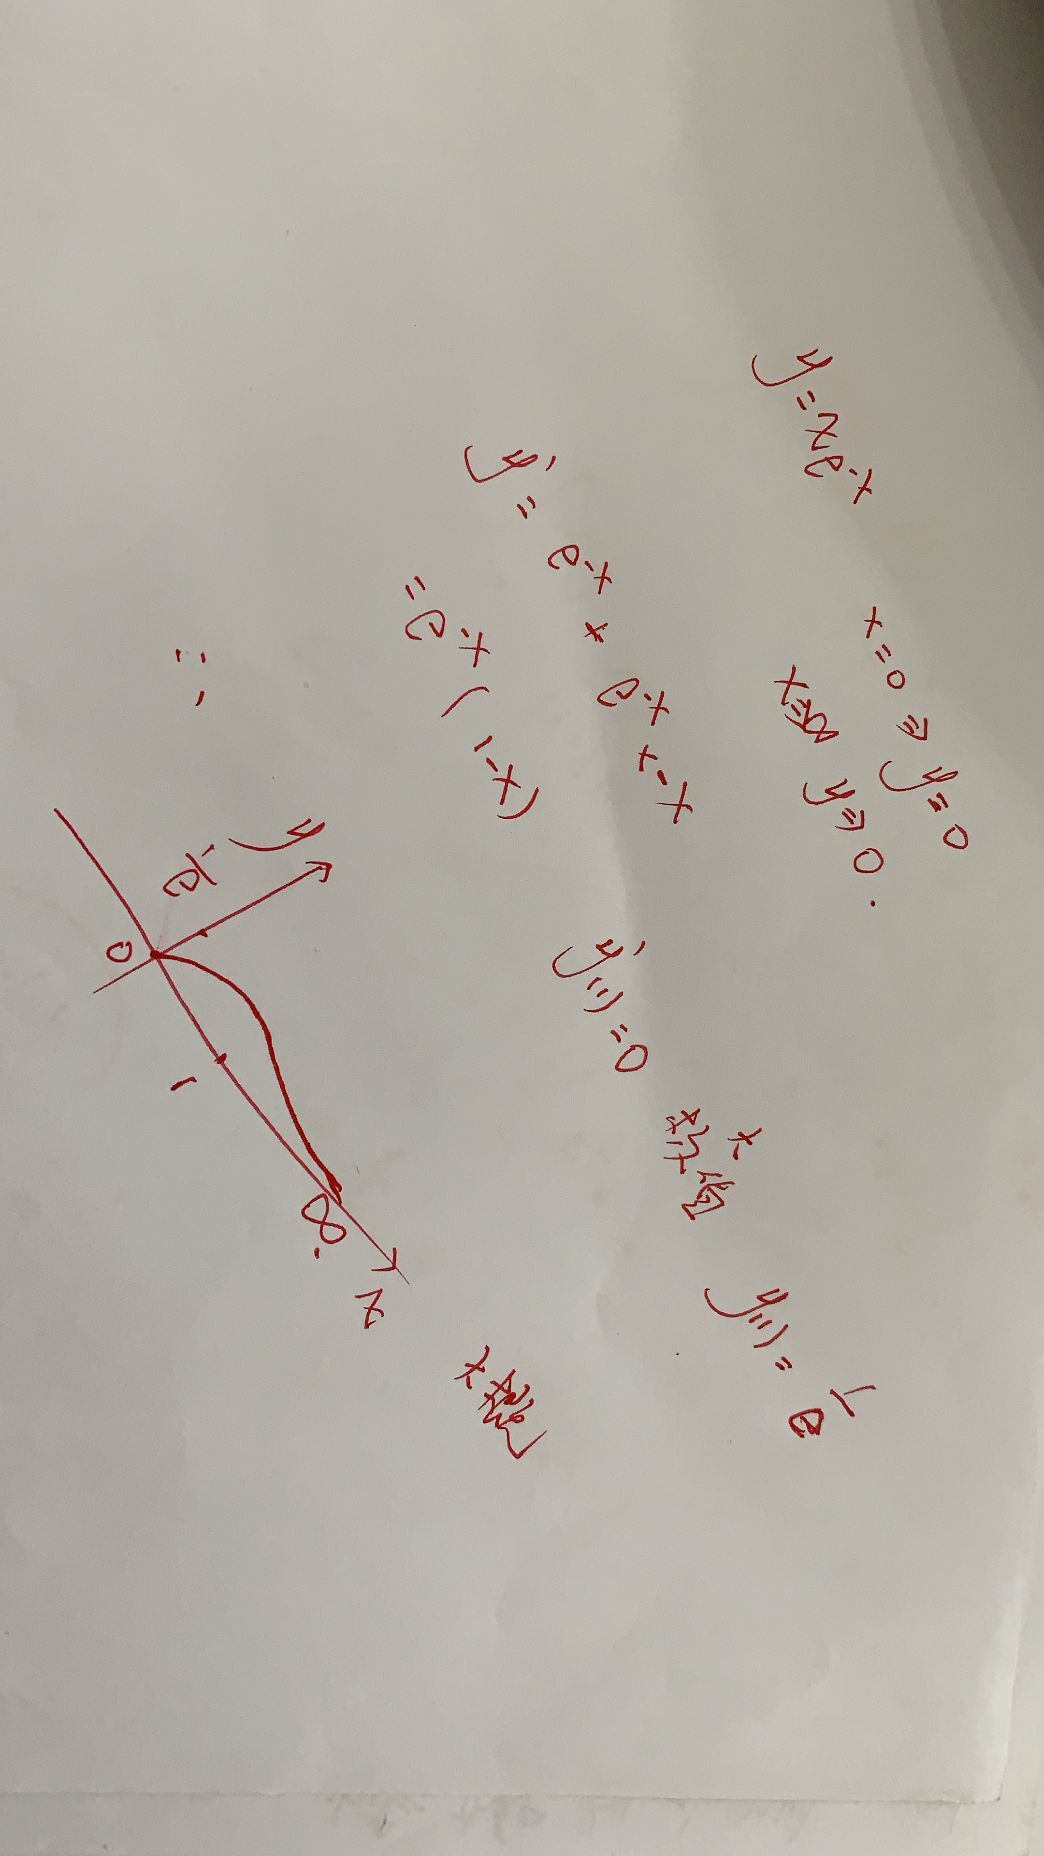 y = xe^-x
x=0 ⇒ y=0
y⇒0.
y' = e^-x + e^-x · -x
= e^-x (1-x)
y'(1)=0
y(1) = 1/e
∴
y
1/e
0
1
∞.
x